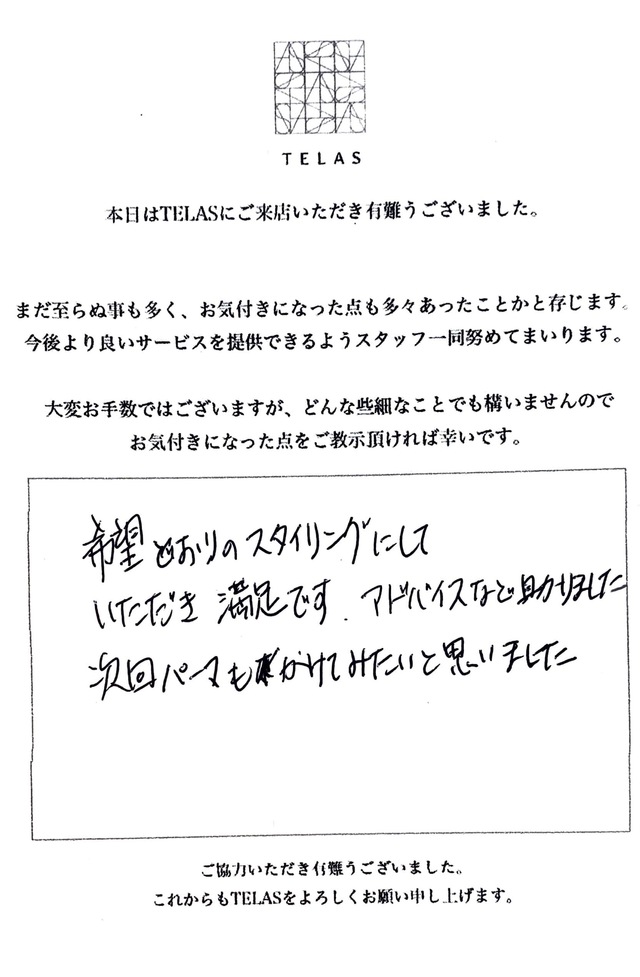 TELAS
本日はTELASにご来店いただき有難うございました。
まだ至らぬ事も多く、お気付きになった点も多々あったことかと存じます。
今後より良いサービスを提供できるようスタッフ一同努めてまいります。
大変お手数ではございますが、どんな些細なことでも構いませんので
お気付きになった点をご教示頂ければ幸いです。
希望どおりのスタイリングにして
いただき満足です．アドバイスなど助かりました
次回パーマもかけてみたいと思いました
ご協力いただき有難うございました。
これからもTELASをよろしくお願い申し上げます。